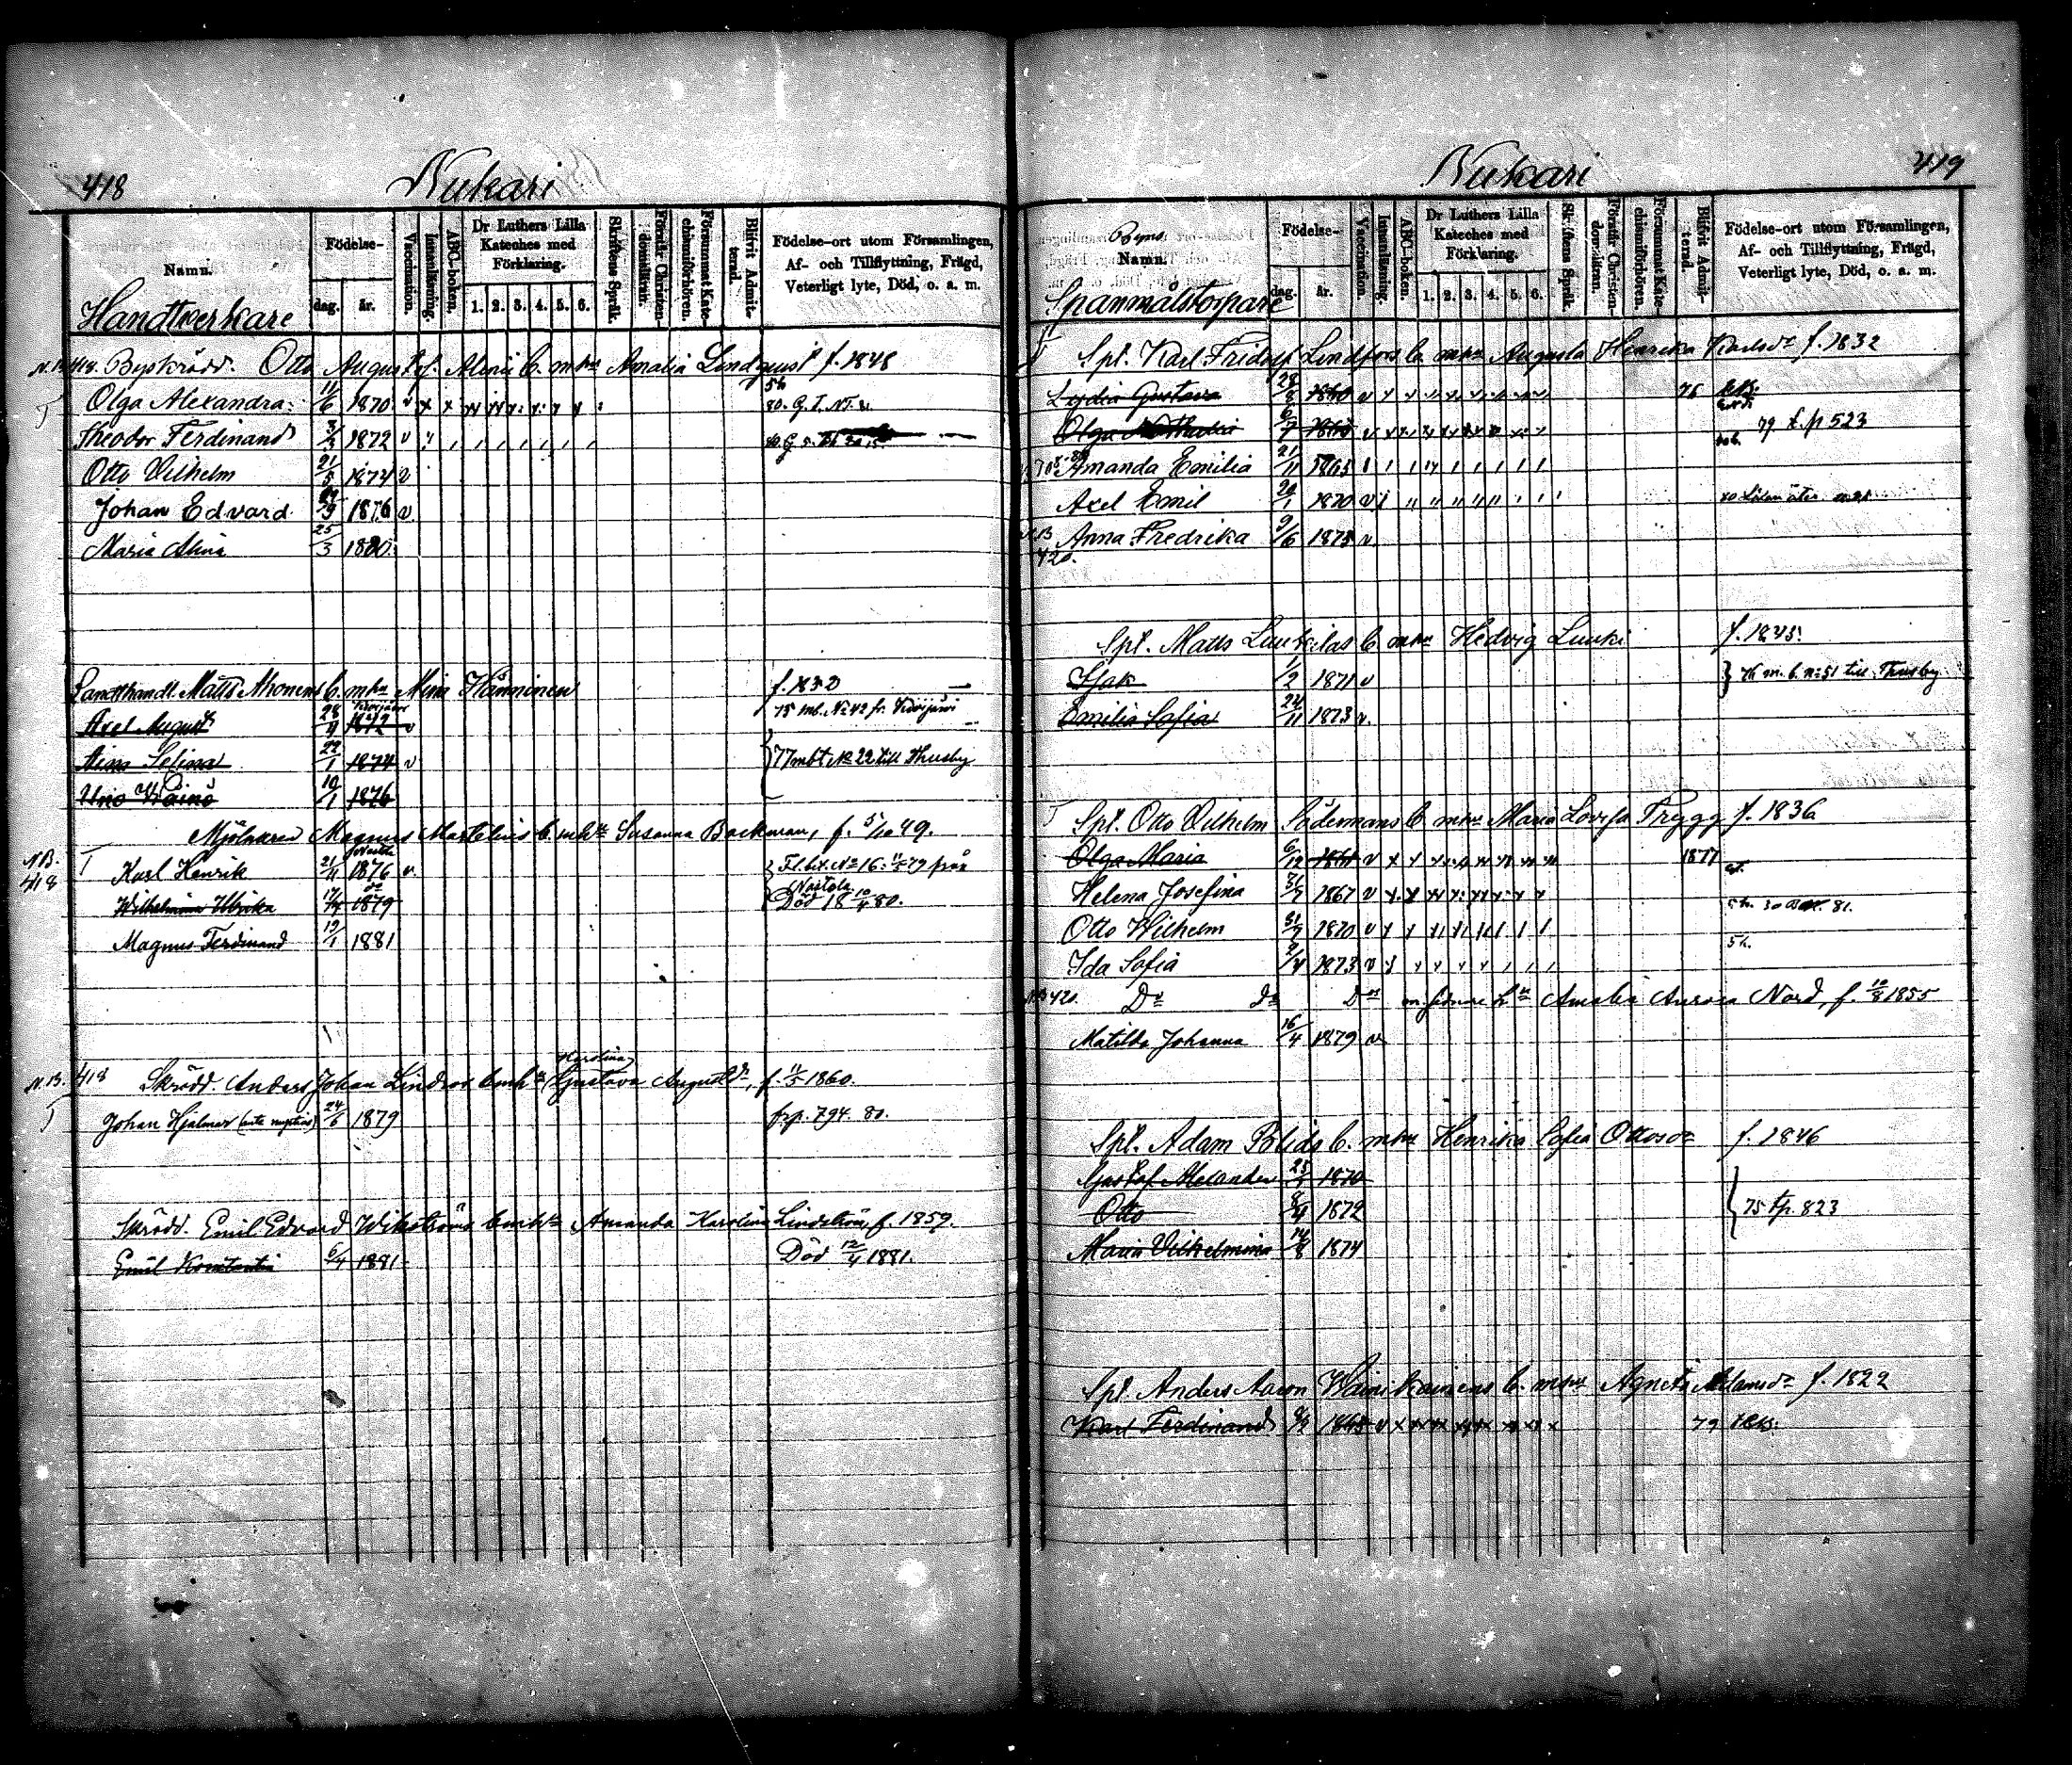 418
Nukari
Namn.
Födelse-
dag.
år.
Vaccination.
Innanläsning.
ABC-boken.
Dr Luthers Lilla Kateches med Förklaring.
1. 2. 3. 4. 5. 6.
Skriftens Språk.
Förstår Christendomsläran.
Försummat Katechismiförhören.
Blifvit Admitterad.
Födelse-ort utom Församlingen, Af- och Tillflyttning, Frägd, Veterligt lyte, Död, o. a. m.
Handtverkare
N.B. 418. Byskrädd. Otto August Amalia Lindqvist f. 1848
Olga Alexandra 11/6 1870 v
Theodor Ferdinand 3/3 1872 v
Otto Vilhelm 21/5 1874 v
Johan Edvard 1876 v.
Maria Alina 25/3 1880
Landthandl. Matts Ahonens b. mhu Mina Hänninen f. 1830
Axel August 28/4 1872 v 75 mb. No 42 fr. Kivijärvi
Aina Selina 22/1 1874 v
77 mbt No 22 till Thusby
Uno Wäinö 10/1 1876
Mjölnaren Magnus Martelius b. mhu Susanna Backman, f. 5/10 49.
N.B. 418
Karl Henrik 21/11 1876 v. Fl. bet. No 16. 79 från Nastola
Wilhelmina Ulrika 17/4 1879 Död 18 10/4 80.
Magnus Ferdinand 19/1 1881
Karolina
N.B. 418 Skrädd. Anders Johan Lindroos b mhu Gustava Augustdr, f. 11/5 1860.
Johan Hjalmar (ante nuptias) 24/6 1879 frp. 794. 80.
Skrädd. Emil Edvard Wikströms b mhu Amanda Karolina Lindström, f. 1859.
Emil Konstantin 6/4 1881 Död 12/4 1881.
419
Nukari
Namn.
Födelse-
dag.
år.
Vaccination.
Innanläsning.
ABC-boken.
Dr Luthers Lilla Kateches med Förklaring.
1. 2. 3. 4. 5. 6.
Skriftens Språk.
Förstår Christendomsläran.
Försummat Katechismiförhören.
Blifvit Admitterad.
Födelse-ort utom Församlingen, Af- och Tillflyttning, Frägd, Veterligt lyte, Död, o. a. m.
Spanmålstorpare
Spt. Karl Fridolf Lindfors b. mhu Augusta Henrika Karlsdr f. 1832
Lydia Gustava 28/8 1860 v 76
Olga 6/7 79 t. p 523
Amanda Emilia 21/11 1865
Axel Emil 20/1 1870 v
N.B. 420. Anna Fredrika 9/6 1875 v.
Spt. Matts Luukilas b mhu Hedvig Luuki f. 1845.
Isak 1/2 1871 v 76 m. b. No 51 till Thusby
Emilia Sofia 24/11 1873 v.
Spt. Otto Vilhelm Södermans b mhu Maria Lovisa Trygg f. 1836
Olga Maria 6/12 1861 v 1877
Helena Josefina 1867 v
Otto Wilhelm 31/7 1870 v
Ida Sofia 9/4 1873 v
N.B. 420. Do do Do m. sednare h. Amalia Aurora Nord, f. 10/8 1855
Matilda Johanna 16/4 1879 v
Spt. Adam Polids b. mhu Henrika Sofia Ottosdr f. 1846
Gustaf Alexander 1870
Otto 8/4 1872 75 tp. 823
Maria Vilhelmina 14/8 1874
Spt. Anders Aaron Wäinikainens b. mhu Agneta Adamsdr f. 1822
Karl Ferdinand 79